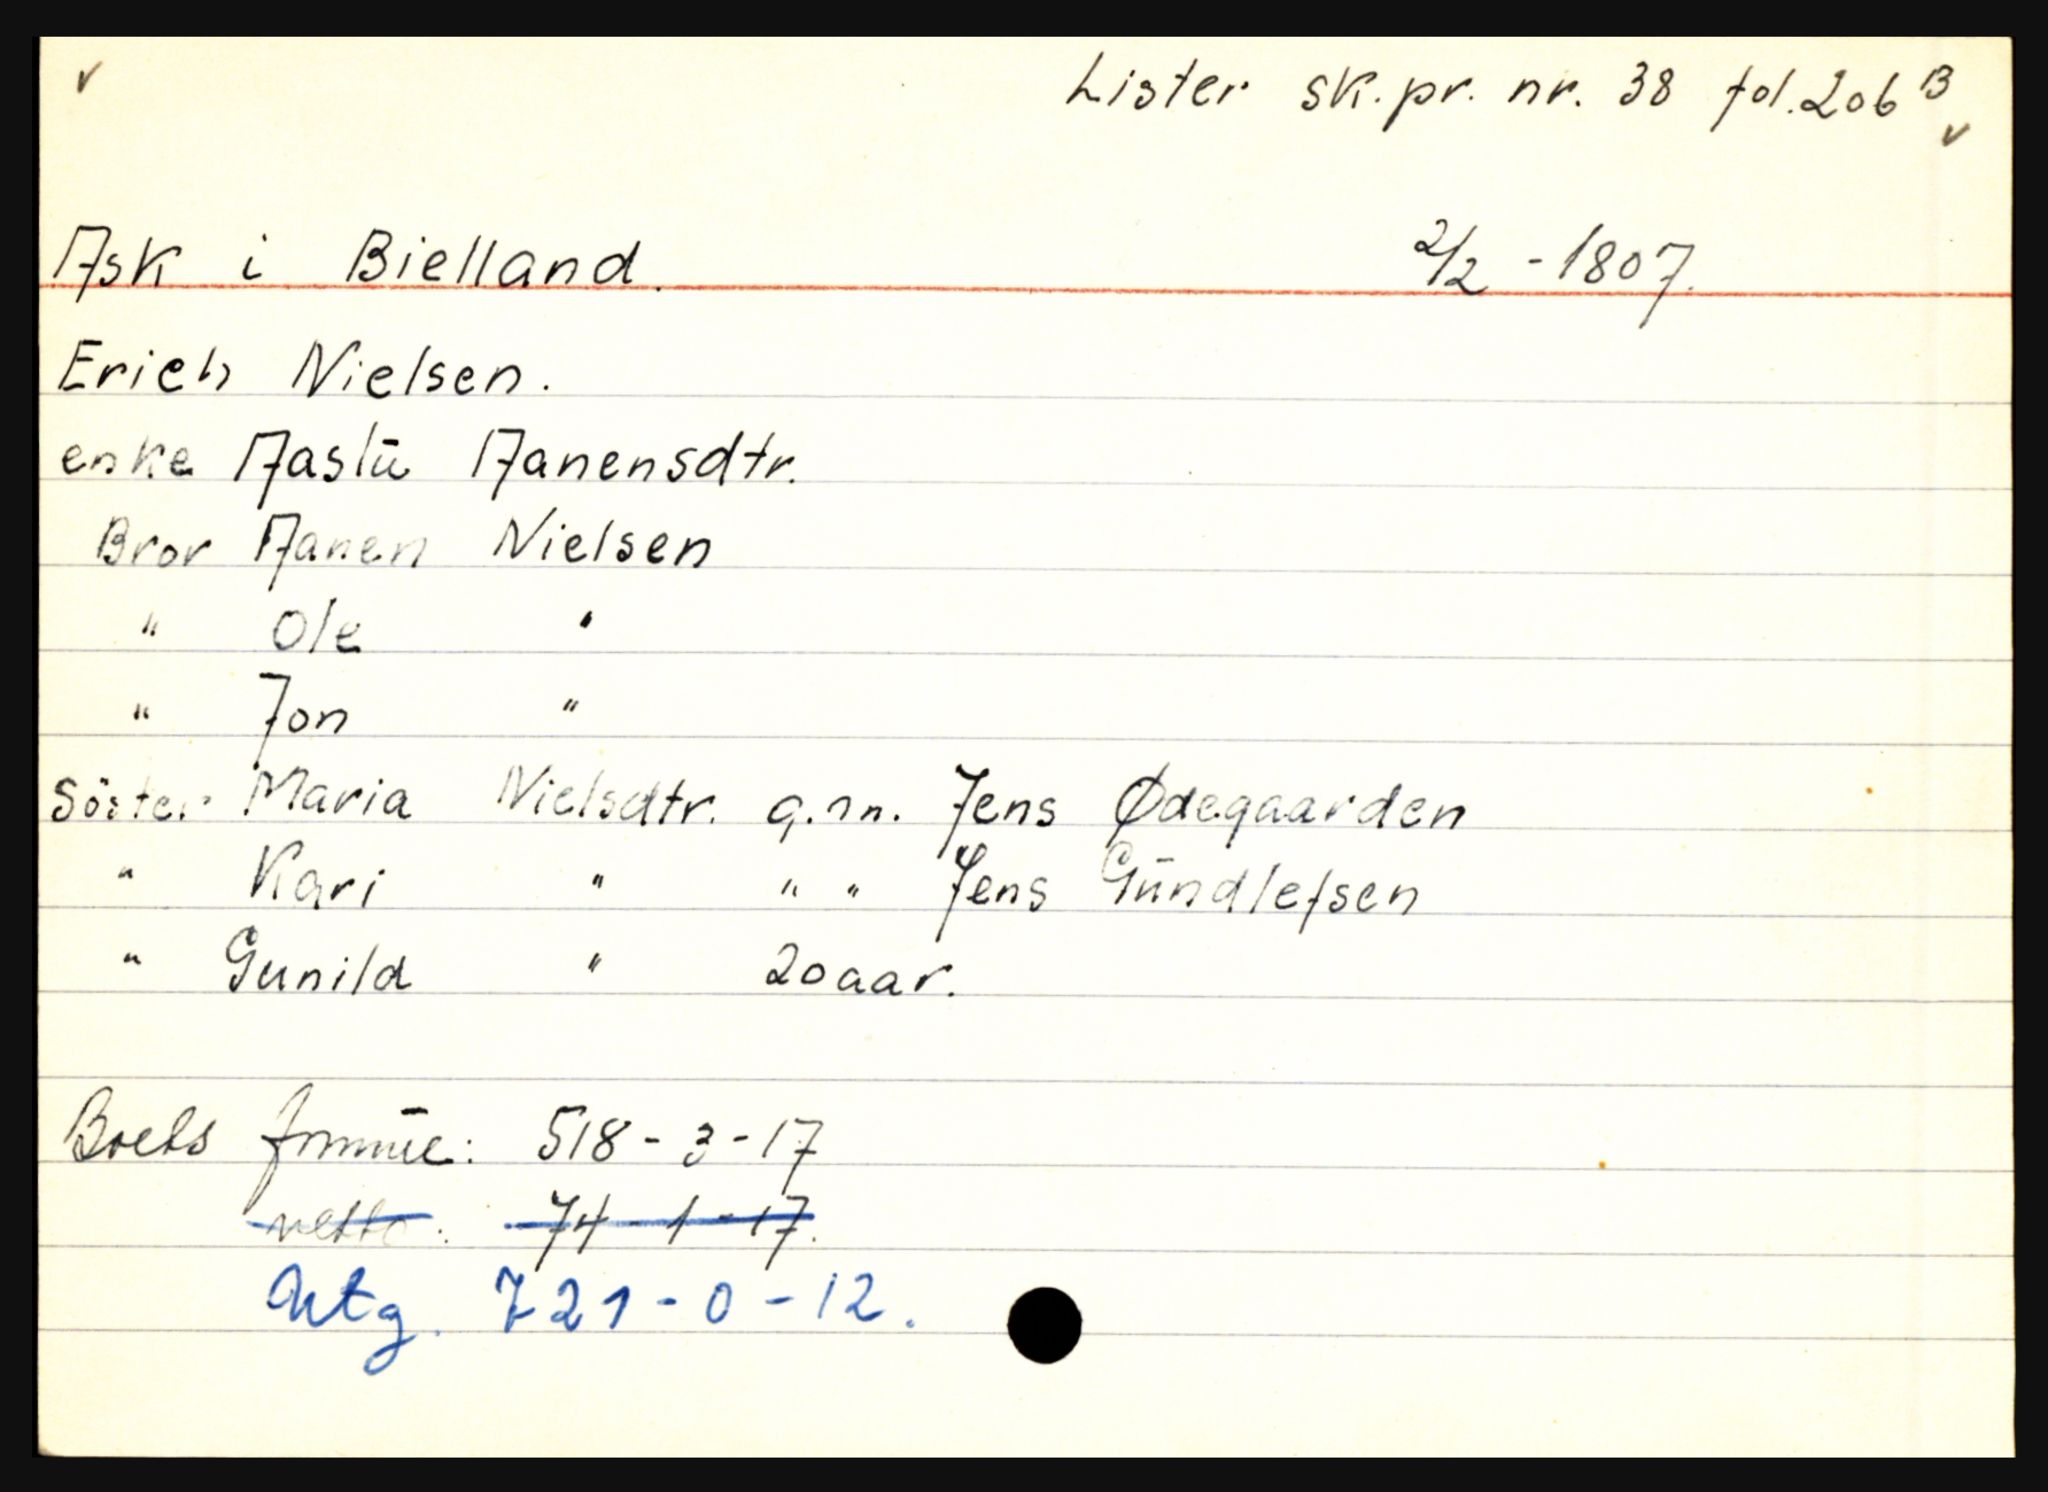 Lister sk.pr. nr. 38 fol. 206 B
Ask i Bielland. 2/2 - 1807.
Erich Nielsen.
enke Aastū Aanensdtr.
Bror Aanen Nielsen
" Ole "
" Jon "
Söster Maria Nielsdtr. g.m. Jens Ødegaarden
" Kari " " " Jens Gūndlefsen
" Gunild " 20 aar.
Boets formūe: 518 - 3 - 17
netto. 74 - 1 - 17.
Utg. 721 - 0 - 12.